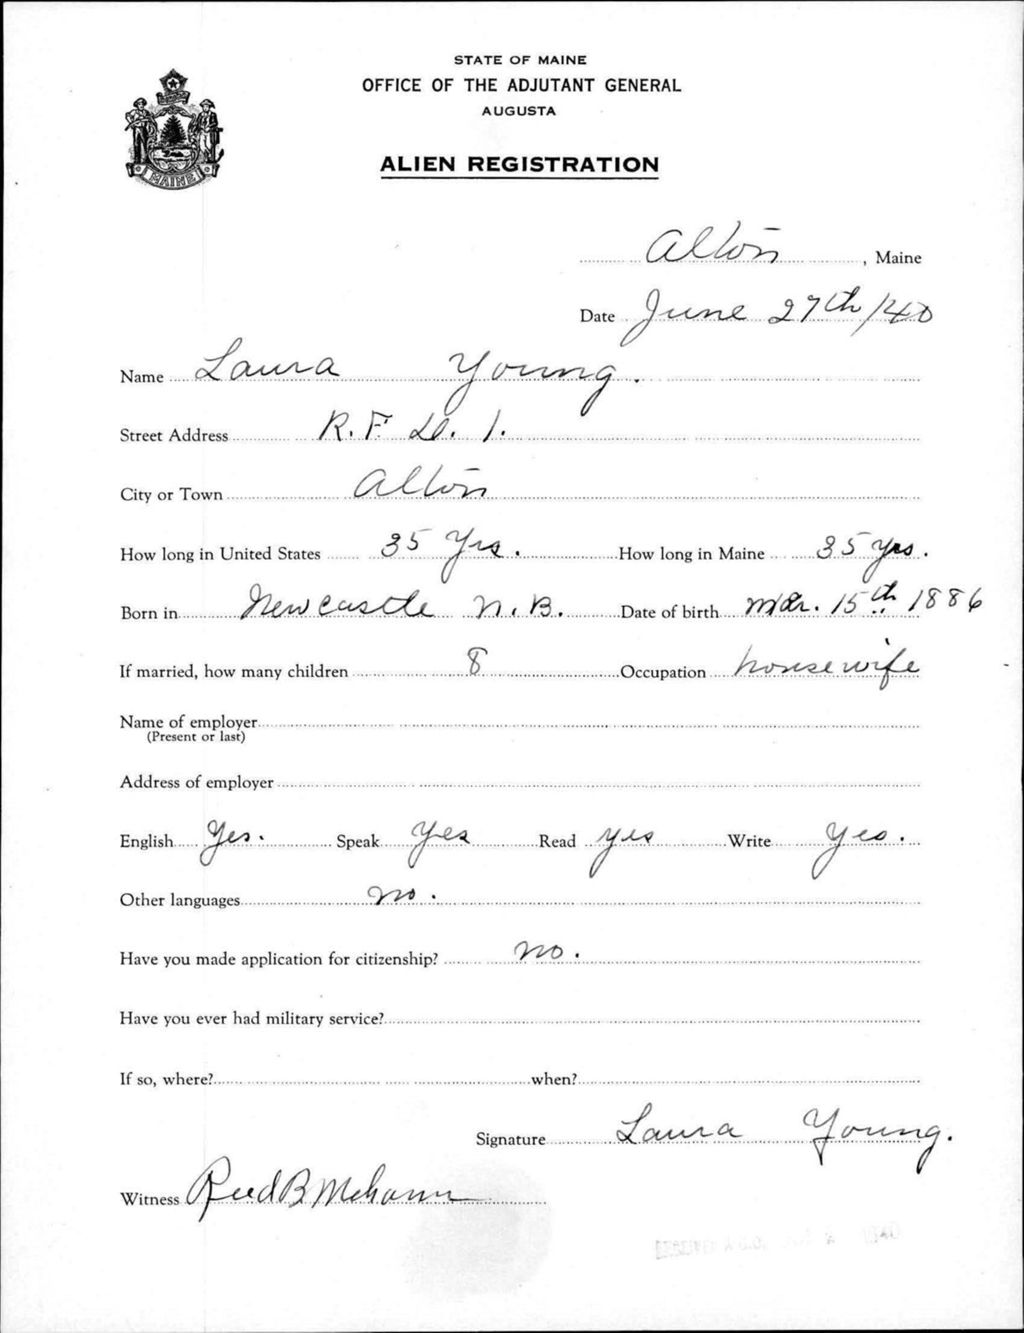 STATE OF MAINE
OFFICE OF THE ADJUTANT GENERAL
AUGUSTA
ALIEN REGISTRATION
MAINE
Alton, Maine
Date June 27th/40
Name Laura Young.
Street Address R. F. D. 1.
City or Town Alton
How long in United States 35 Yrs. How long in Maine 35 yrs.
Born in Newcastle N.B. Date of birth Mar. 15th 1886
If married, how many children 8 Occupation housewife
Name of employer
(Present or last)
Address of employer
English Yes. Speak Yes Read yes Write Yes.
Other languages no.
Have you made application for citizenship? no.
Have you ever had military service?
If so, where? when?
Signature Laura Young.
Witness Reed B